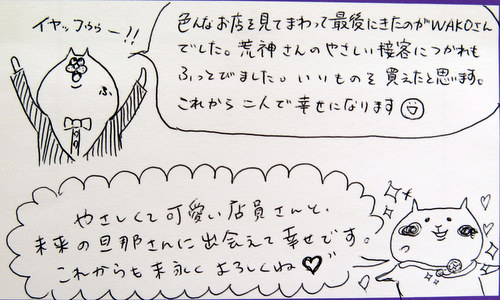 イヤッフゥゥー!!
色んなお店を見てまわって最後にきたのがWAKOさん
でした。荒神さんのやさしい接客につかれも
ふっとびました。いいものを買えたと思います。
これから二人で幸せになります
ふ
やさしくて可愛い店員さんと、
未来の旦那さんに出会えて幸せです。
これからも末永くよろしくね♡